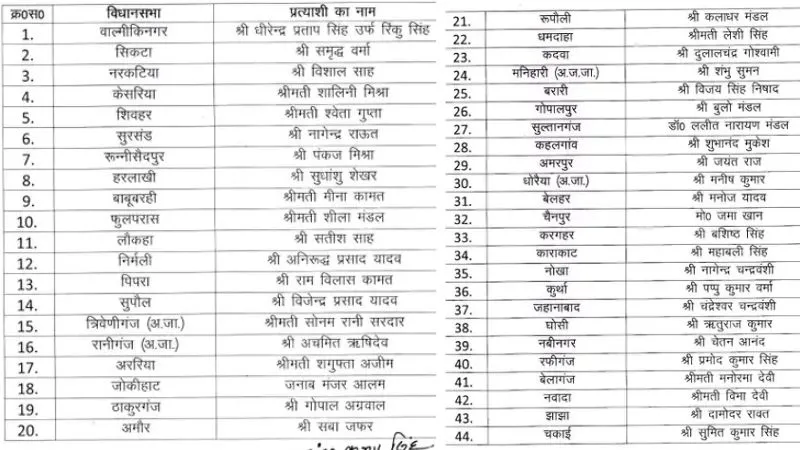 क्र०स० विधानसभा प्रत्याशी का नाम
1. वाल्मीकिनगर श्री धीरेन्द्र प्रताप सिंह उर्फ रिंकु सिंह
2. सिकटा श्री समृद्ध वर्मा
3. नरकटिया श्री विशाल साह
4. केसरिया श्रीमती शालिनी मिश्रा
5. शिवहर श्रीमती श्वेता गुप्ता
6. सुरसंड श्री नागेन्द्र राऊत
7. रून्नीसैदपुर श्री पंकज मिश्रा
8. हरलाखी श्री सुधांशु शेखर
9. बाबूबरही श्रीमती मीना कामत
10. फुलपरास श्रीमती शीला मंडल
11. लौकहा श्री सतीश साह
12. निर्मली श्री अनिरूद्ध प्रसाद यादव
13. पिपरा श्री राम विलास कामत
14. सुपौल श्री विजेन्द्र प्रसाद यादव
15. त्रिवेणीगंज (अ.जा.) श्रीमती सोनम रानी सरदार
16. रानीगंज (अ.जा.) श्री अचमित ऋषिदेव
17. अररिया श्रीमती शगुफ्ता अजीम
18. जोकीहाट जनाब मंजर आलम
19. ठाकुरगंज श्री गोपाल अग्रवाल
20. अमौर श्री सबा जफर
21. रूपौली श्री कलाधर मंडल
22. धमदाहा श्रीमती लेशी सिंह
23. कदवा श्री दुलालचंद्र गोश्वामी
24. मनिहारी (अ.ज.जा.) श्री शंभु सुमन
25. बरारी श्री विजय सिंह निषाद
26. गोपालपुर श्री बुलो मंडल
27. सुल्तानगंज डॉ० ललीत नारायण मंडल
28. कहलगांव श्री शुभानंद मुकेश
29. अमरपुर श्री जयंत राज
30. धोरैया (अ.जा.) श्री मनीष कुमार
31. बेलहर श्री मनोज यादव
32. चैनपुर मो० जमा खान
33. करगहर श्री बशिष्ठ सिंह
34. काराकाट श्री महाबली सिंह
35. नोखा श्री नागेन्द्र चन्द्रवंशी
36. कुर्था श्री पप्पु कुमार वर्मा
37. जहानाबाद श्री चंद्रेश्वर चन्द्रवंशी
38. घोसी श्री ऋतुराज कुमार
39. नबीनगर श्री चेतन आनंद
40. रफीगंज श्री प्रमोद कुमार सिंह
41. बेलागंज श्रीमती मनोरमा देवी
42. नवादा श्रीमती विभा देवी
43. झाझा श्री दामोदर रावत
44. चकाई श्री सुमित कुमार सिंह